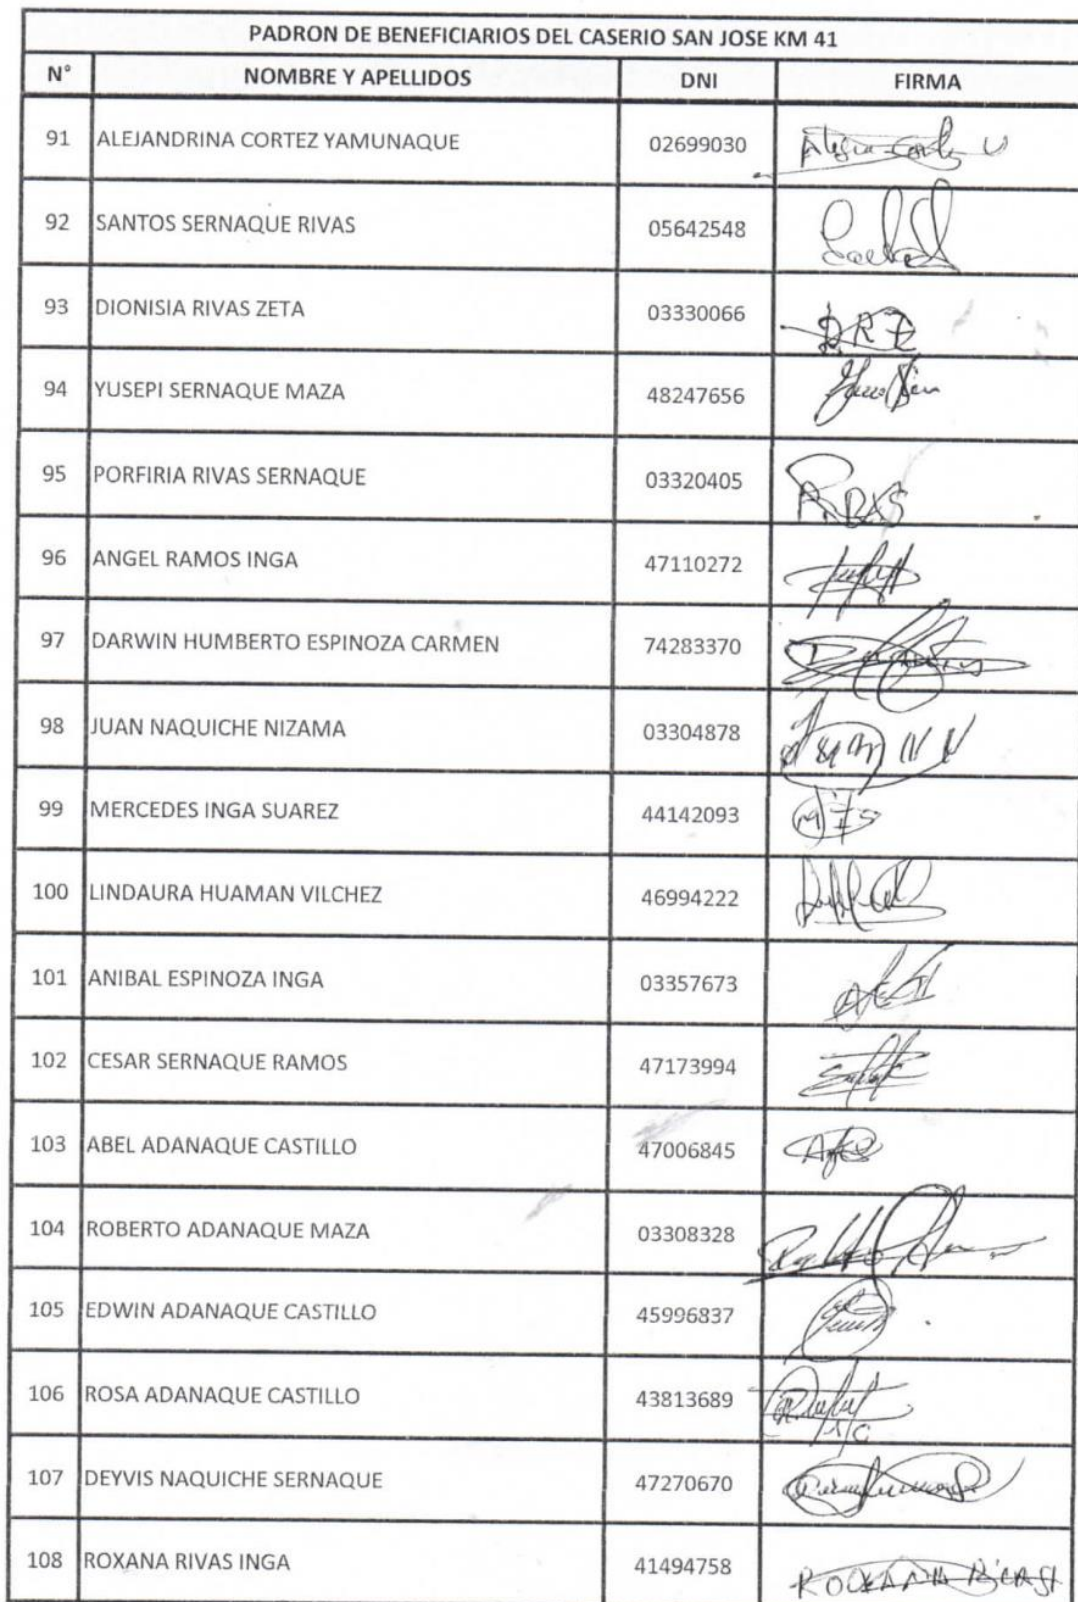 PADRON DE BENEFICIARIOS DEL CASERIO SAN JOSE KM 41
N° NOMBRE Y APELLIDOS DNI FIRMA
91 ALEJANDRINA CORTEZ YAMUNAQUE 02699030
92 SANTOS SERNAQUE RIVAS 05642548
93 DIONISIA RIVAS ZETA 03330066 DRZ
94 YUSEPI SERNAQUE MAZA 48247656
95 PORFIRIA RIVAS SERNAQUE 03320405
96 ANGEL RAMOS INGA 47110272
97 DARWIN HUMBERTO ESPINOZA CARMEN 74283370
98 JUAN NAQUICHE NIZAMA 03304878 Juan N N
99 MERCEDES INGA SUAREZ 44142093 MIS
100 LINDAURA HUAMAN VILCHEZ 46994222
101 ANIBAL ESPINOZA INGA 03357673
102 CESAR SERNAQUE RAMOS 47173994
103 ABEL ADANAQUE CASTILLO 47006845
104 ROBERTO ADANAQUE MAZA 03308328
105 EDWIN ADANAQUE CASTILLO 45996837
106 ROSA ADANAQUE CASTILLO 43813689
107 DEYVIS NAQUICHE SERNAQUE 47270670
108 ROXANA RIVAS INGA 41494758